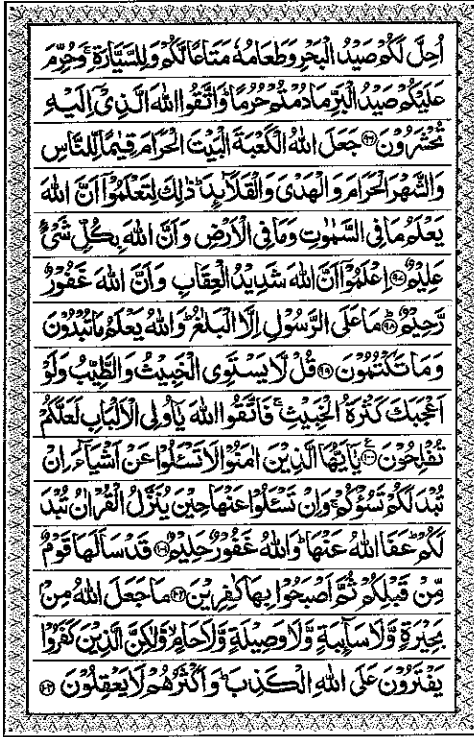 اُحِلَّ لَكُمْ صَيْدُ الْبَحْرِ وَطَعَامُهٗ مَتَاعًا لَّكُمْ وَلِلسَّيَّارَةِ ۚ وَحُرِّمَ
عَلَيْكُمْ صَيْدُ الْبَرِّ مَا دُمْتُمْ حُرُمًا ؕ وَاتَّقُوا اللّٰهَ الَّذِیْۤ اِلَيْهِ
تُحْشَرُوْنَ ﴿۹۶﴾ جَعَلَ اللّٰهُ الْكَعْبَةَ الْبَيْتَ الْحَرَامَ قِيٰمًا لِّلنَّاسِ
وَالشَّهْرَ الْحَرَامَ وَالْهَدْیَ وَالْقَلَآئِدَ ؕ ذٰلِكَ لِتَعْلَمُوْۤا اَنَّ اللّٰهَ
يَعْلَمُ مَا فِی السَّمٰوٰتِ وَمَا فِی الْاَرْضِ وَاَنَّ اللّٰهَ بِكُلِّ شَیْءٍ
عَلِيْمٌ ﴿۹۷﴾ اِعْلَمُوْۤا اَنَّ اللّٰهَ شَدِيْدُ الْعِقَابِ وَاَنَّ اللّٰهَ غَفُوْرٌ
رَّحِيْمٌ ﴿۹۸﴾ مَا عَلَی الرَّسُوْلِ اِلَّا الْبَلٰغُ ؕ وَاللّٰهُ يَعْلَمُ مَا تُبْدُوْنَ
وَمَا تَكْتُمُوْنَ ﴿۹۹﴾ قُلْ لَّا يَسْتَوِی الْخَبِيْثُ وَالطَّيِّبُ وَلَوْ
اَعْجَبَكَ كَثْرَةُ الْخَبِيْثِ ۚ فَاتَّقُوا اللّٰهَ يٰۤاُولِی الْاَلْبَابِ لَعَلَّكُمْ
تُفْلِحُوْنَ ﴿۱۰۰﴾ يٰۤاَيُّهَا الَّذِيْنَ اٰمَنُوْا لَا تَسْـَٔلُوْا عَنْ اَشْيَآءَ اِنْ
تُبْدَ لَكُمْ تَسُؤْكُمْ ۚ وَاِنْ تَسْـَٔلُوْا عَنْهَا حِيْنَ يُنَزَّلُ الْقُرْاٰنُ تُبْدَ
لَكُمْ ؕ عَفَا اللّٰهُ عَنْهَا ؕ وَاللّٰهُ غَفُوْرٌ حَلِيْمٌ ﴿۱۰۱﴾ قَدْ سَاَلَهَا قَوْمٌ
مِّنْ قَبْلِكُمْ ثُمَّ اَصْبَحُوْا بِهَا كٰفِرِيْنَ ﴿۱۰۲﴾ مَا جَعَلَ اللّٰهُ مِنْۢ
بَحِيْرَةٍ وَّلَا سَآئِبَةٍ وَّلَا وَصِيْلَةٍ وَّلَا حَامٍ ۙ وَّلٰكِنَّ الَّذِيْنَ كَفَرُوْا
يَفْتَرُوْنَ عَلَی اللّٰهِ الْكَذِبَ ؕ وَاَكْثَرُهُمْ لَا يَعْقِلُوْنَ ﴿۱۰۳﴾